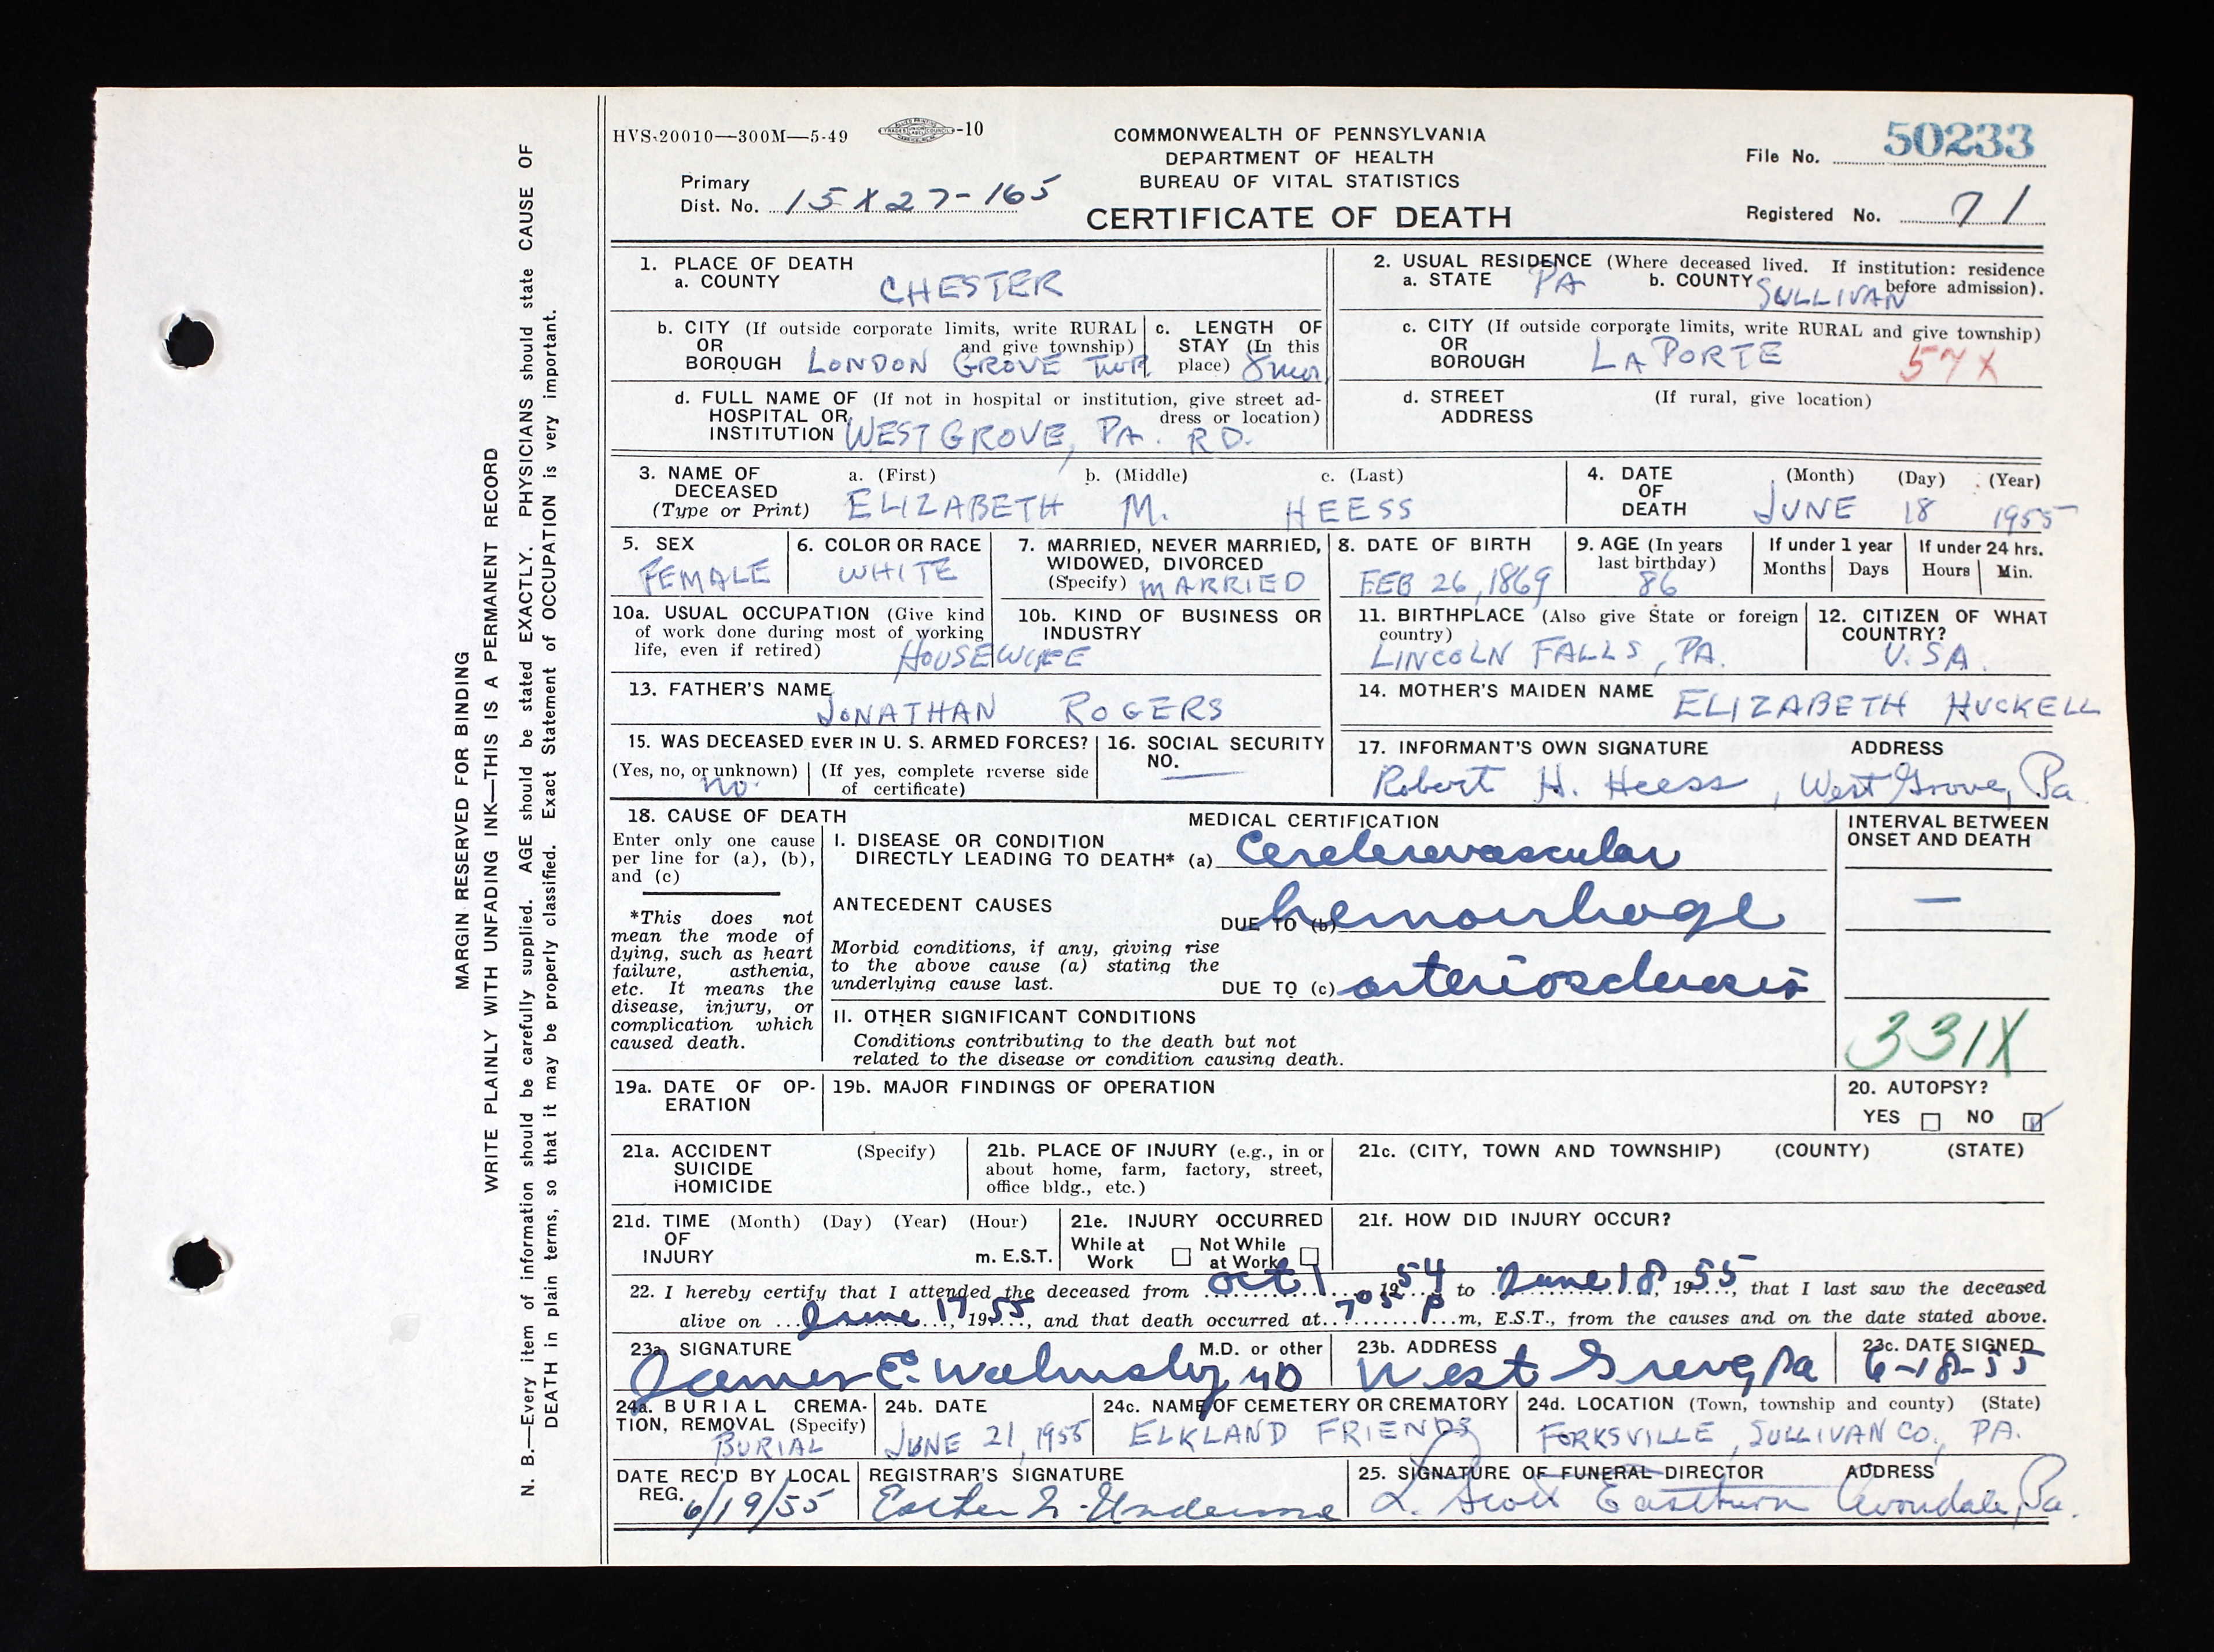 HVS-20010—300M—5-49 -10
COMMONWEALTH OF PENNSYLVANIA
DEPARTMENT OF HEALTH
BUREAU OF VITAL STATISTICS
CERTIFICATE OF DEATH
File No. 50233
Primary
Dist. No. 15 X 27-165
Registered No. 71
1. PLACE OF DEATH
a. COUNTY CHESTER
2. USUAL RESIDENCE (Where deceased lived. If institution: residence
before admission).
a. STATE PA b. COUNTY SULLIVAN
b. CITY (If outside corporate limits, write RURAL
OR and give township)
BOROUGH LONDON GROVE TWP.
c. LENGTH OF
STAY (In this
place) 8 mos
c. CITY (If outside corporate limits, write RURAL and give township)
OR
BOROUGH LA PORTE 57X
d. FULL NAME OF (If not in hospital or institution, give street ad-
HOSPITAL OR dress or location)
INSTITUTION WEST GROVE, PA. RD.
d. STREET (If rural, give location)
ADDRESS
3. NAME OF a. (First) b. (Middle) c. (Last)
DECEASED
(Type or Print) ELIZABETH M. HEESS
4. DATE (Month) (Day) (Year)
OF
DEATH JUNE 18 1955
5. SEX
FEMALE
6. COLOR OR RACE
WHITE
7. MARRIED, NEVER MARRIED,
WIDOWED, DIVORCED
(Specify) MARRIED
8. DATE OF BIRTH
FEB 26, 1869
9. AGE (In years
last birthday)
86
If under 1 year
Months Days
If under 24 hrs.
Hours Min.
10a. USUAL OCCUPATION (Give kind
of work done during most of working
life, even if retired) HOUSEWIFE
10b. KIND OF BUSINESS OR
INDUSTRY
11. BIRTHPLACE (Also give State or foreign
country)
LINCOLN FALLS, PA.
12. CITIZEN OF WHAT
COUNTRY?
U.S.A.
13. FATHER'S NAME
JONATHAN ROGERS
14. MOTHER'S MAIDEN NAME ELIZABETH HUCKELL
15. WAS DECEASED EVER IN U. S. ARMED FORCES?
(Yes, no, or unknown) (If yes, complete reverse side
of certificate)
no.
16. SOCIAL SECURITY
NO.
17. INFORMANT'S OWN SIGNATURE ADDRESS
Robert H. Heess, West Grove, Pa
18. CAUSE OF DEATH
Enter only one cause
per line for (a), (b),
and (c)
*This does not
mean the mode of
dying, such as heart
failure, asthenia,
etc. It means the
disease, injury, or
complication which
caused death.
MEDICAL CERTIFICATION
I. DISEASE OR CONDITION
DIRECTLY LEADING TO DEATH* (a) Cerebrovascular
ANTECEDENT CAUSES
DUE TO (b) hemorrhage
Morbid conditions, if any, giving rise
to the above cause (a) stating the
underlying cause last.
DUE TO (c) arteriosclerosis
II. OTHER SIGNIFICANT CONDITIONS
Conditions contributing to the death but not
related to the disease or condition causing death.
INTERVAL BETWEEN
ONSET AND DEATH
—
331X
19a. DATE OF OP-
ERATION
19b. MAJOR FINDINGS OF OPERATION
20. AUTOPSY?
YES NO
21a. ACCIDENT (Specify)
SUICIDE
HOMICIDE
21b. PLACE OF INJURY (e.g., in or
about home, farm, factory, street,
office bldg., etc.)
21c. (CITY, TOWN AND TOWNSHIP) (COUNTY) (STATE)
21d. TIME (Month) (Day) (Year) (Hour)
OF
INJURY m. E.S.T.
21e. INJURY OCCURRED
While at Work Not While at Work
21f. HOW DID INJURY OCCUR?
22. I hereby certify that I attended the deceased from Oct 1, 1954 to June 18, 1955, that I last saw the deceased
alive on June 17, 1955, and that death occurred at 705 P m, E.S.T., from the causes and on the date stated above.
23a. SIGNATURE M.D. or other
James E. Walmsley MD
23b. ADDRESS
West Grove, Pa
23c. DATE SIGNED
6-18-55
24a. BURIAL CREMA-
TION, REMOVAL (Specify)
BURIAL
24b. DATE
JUNE 21, 1955
24c. NAME OF CEMETERY OR CREMATORY
ELKLAND FRIENDS
24d. LOCATION (Town, township and county) (State)
FORKSVILLE, SULLIVAN CO., PA.
DATE REC'D BY LOCAL
REG. 6/19/55
REGISTRAR'S SIGNATURE
25. SIGNATURE OF FUNERAL DIRECTOR ADDRESS
L. Scott Eastburn Avondale, Pa.
MARGIN RESERVED FOR BINDING
WRITE PLAINLY WITH UNFADING INK—THIS IS A PERMANENT RECORD
N. B.—Every item of information should be carefully supplied. AGE should be stated EXACTLY. PHYSICIANS should state CAUSE OF
DEATH in plain terms, so that it may be properly classified. Exact Statement of OCCUPATION is very important.